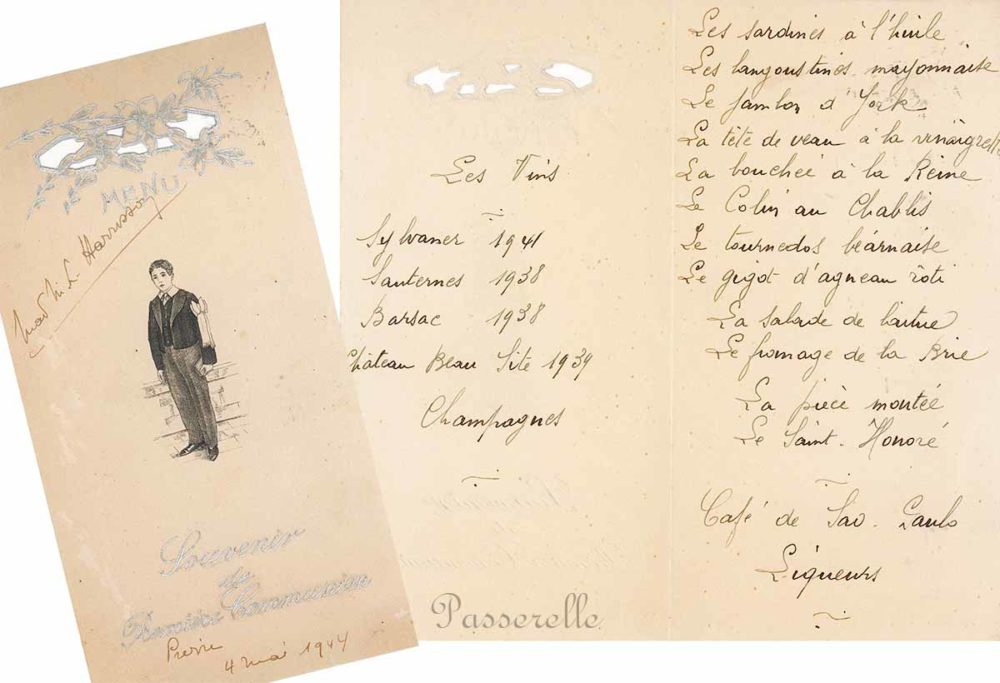 MENU
Harrisson
Souvenir
de
Première Communion
Pierre
4 mai 1944
Les Vins
Sylvaner 1941
Sauternes 1938
Barsac 1938
Château Beau Site 1939
Champagnes
Passerelle
Les sardines à l'huile
Les langoustines mayonnaise
Le jambon d'York
La tête de veau à la vinaigrette
La bouchée à la Reine
Le Colin au Chablis
Le tournedos béarnaise
Le gigot d'agneau rôti
La salade de laitue
Le fromage de la Brie
La pièce montée
Le Saint-Honoré
Café de Sao-Paulo
Liqueurs